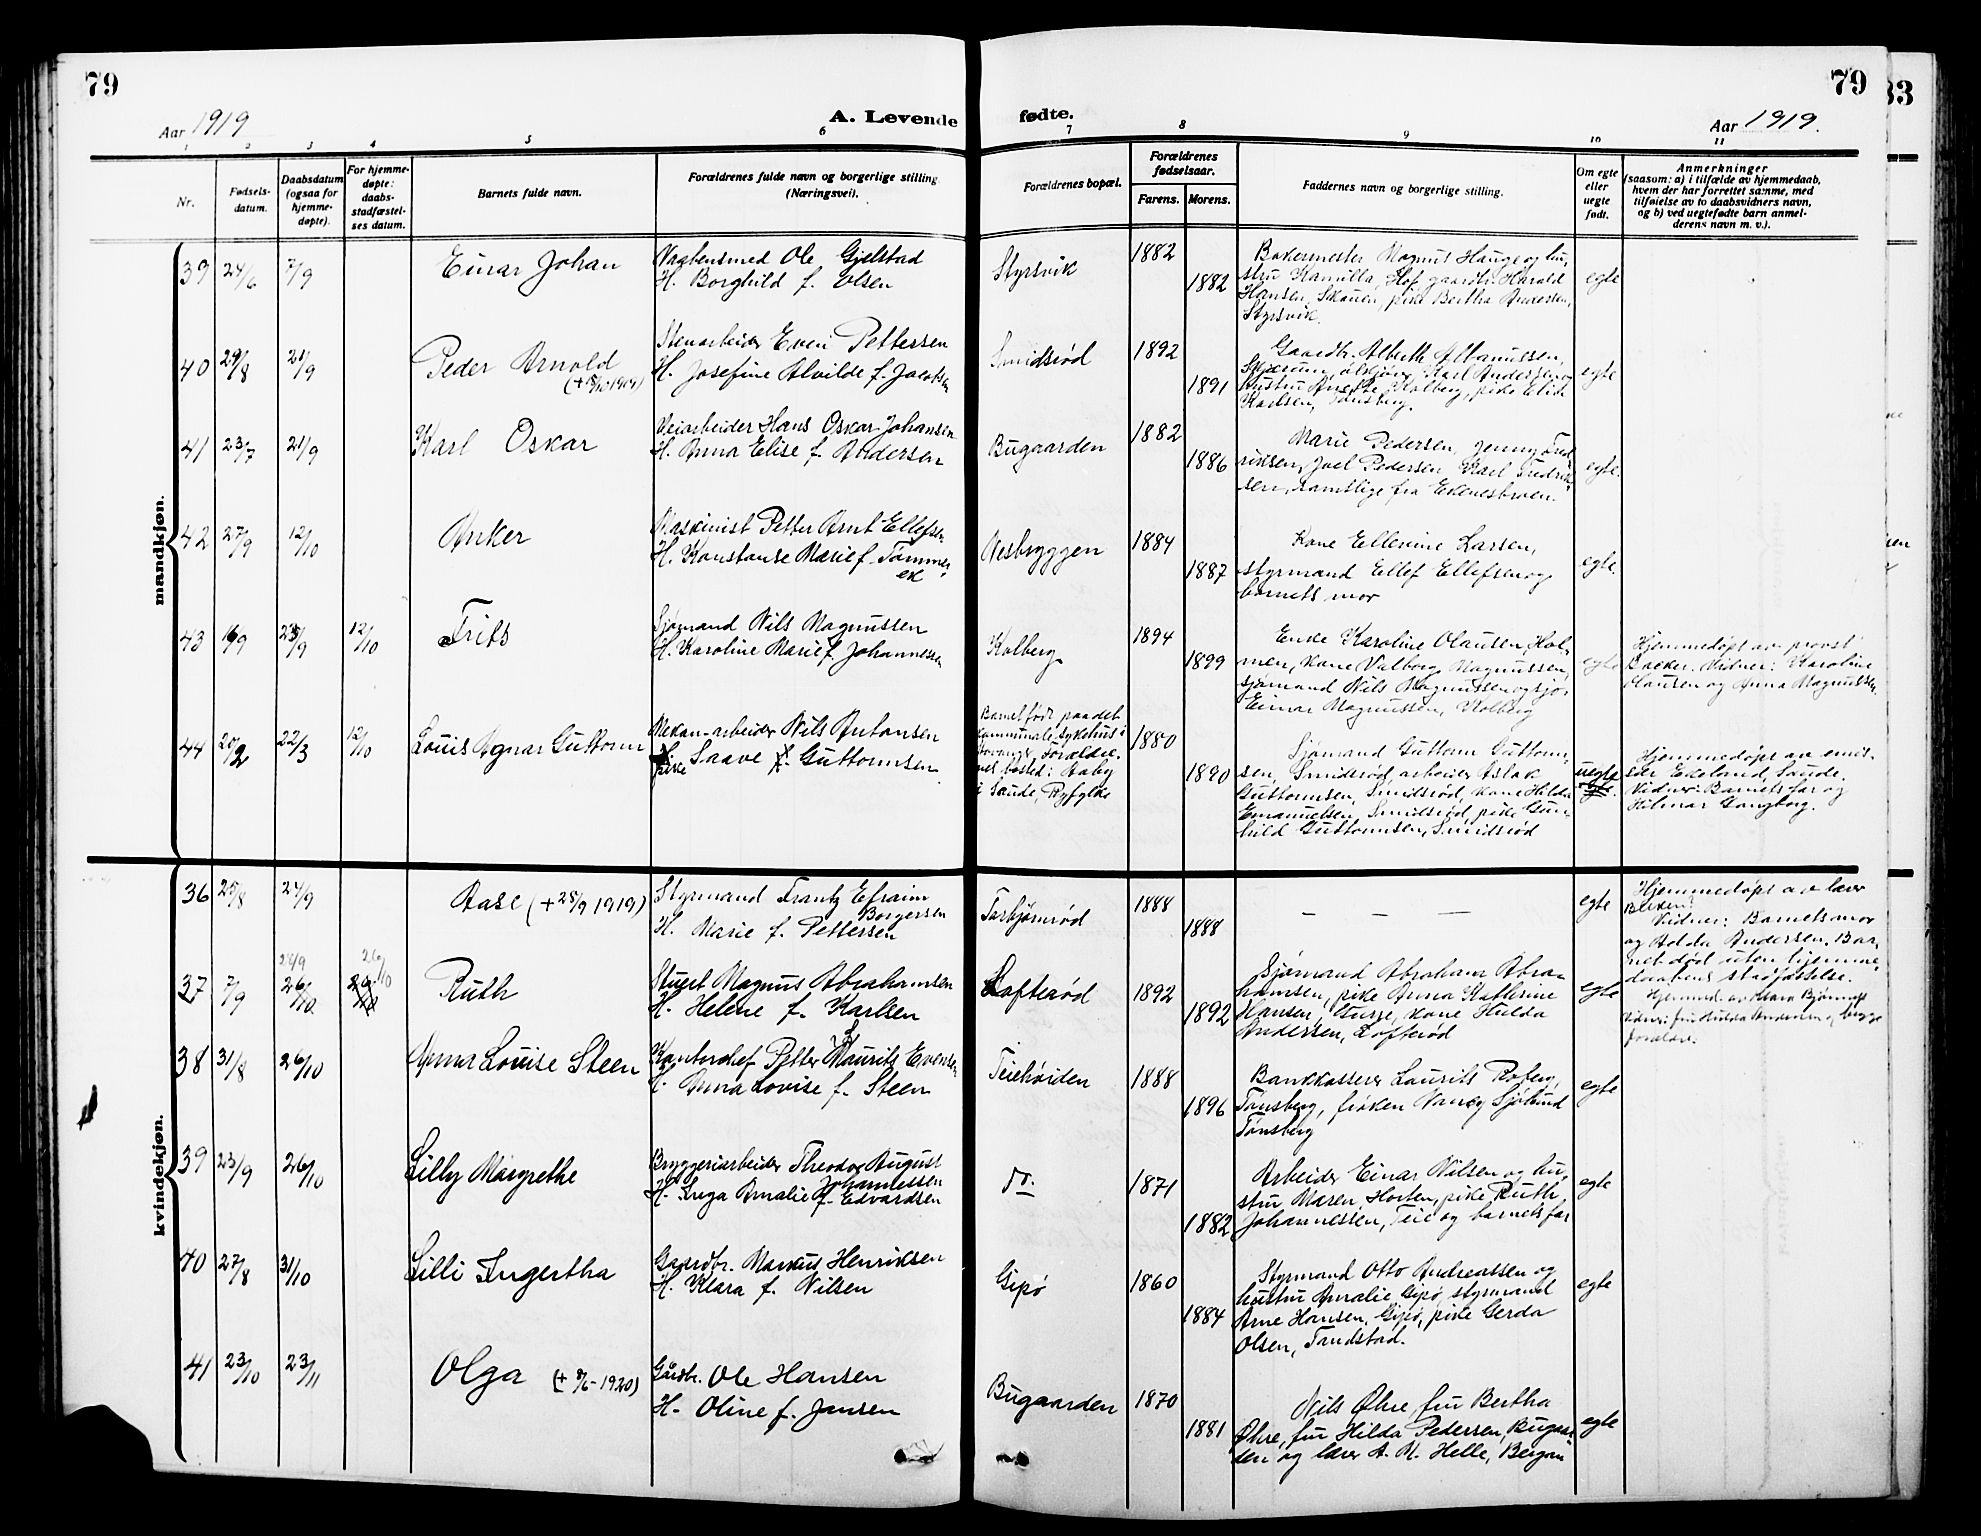 79
79
33
Aar 1919
A. Levende
fødte.
Aar 1919.
1 2 3 4 5 6 7 8 9 10 11
Nr.
Fødsels-
datum.
Daabsdatum
(ogsaa for
hjemme-
døpte).
For hjemme-
døpte:
daabs-
stadfæstel-
ses datum.
Barnets fulde navn.
Forældrenes fulde navn og borgerlige stilling
(Næringsvei).
Forældrenes bopæl.
Forældrenes
fødselsaar.
Farens. Morens.
Faddernes navn og borgerlige stilling.
Om egte
eller
uegte
født.
Anmerkninger
(saasom: a) i tilfælde av hjemmedaab,
hvem der har forrettet samme, med
tilføielse av to daabsvidners navn,
og b) ved uegtefødte barn anmel-
derens navn m. v.).
mandkjøn.
39 24/6 7/9
Einar Johan
Vagtensmed Ole Gjelstad
H. Borghild f. Olsen
Styrsvik
1882
1882
Bakermester Magnus Hauge og hu-
stru Kamilla, Hof, gaardbr. Harald
Hansen, Skauen, pike Bertha Andersen,
Styrsvik.
egte
40 29/8 21/9
Peder Arnold
Stenarbeider Even Pettersen
H. Josefine Alvilde f. Jacobsen
Smidsrød
1892
1891
Gaardbr. Alberth
Karl Andersen og
hustru Kolberg, pike Elise
Karlsen, Tønsberg.
egte
41 23/7 21/9
Karl Oskar
Veiarbeider Hans Oskar Johansen
H. Anna Elise f. Andersen
Bugaarden
1882
1886
Marie Pedersen, Jenny Fred-
riksen, Joel Pedersen Karl Fredrik-
sen, samtlige fra Ekenesbroen.
egte.
42 27/9 12/10
Anker
Maskinist Petter Arnt Ellefsen
H. Konstanse Marie f. Tømmer-
Nesbryggen
1884
1887
Kone Ellevine Larsen,
styrmand Ellef Ellefsen og
barnets mor
egte.
43 12/10
Frits
Sjømand Nils Magnussen
H. Karoline Marie f. Johannessen
Kolberg
1894
1899
Enke Karoline Olausen, Hol-
men, kone Valborg Magnussen,
sjømand Nils Magnussen og sjø.
Einar Magnussen, Kolberg
egte
Hjemmedøpt av provst
Backer. Vidner: Karoline
Olausen og Anna Magnussen.
44 20/2 22/3 12/10
Louis Agnar Guttorm
Mekan-arbeider Nils Antonsen
pike Saave f. Guttormsen
Barnet født paa det
kommunale sykehus i
Stavanger. Forældre-
nes bosted: Aaby
i Saude, Ryfylke
1880
1890
Sjømand Guttorm Guttorm-
sen, Smidsrød, arbeider Aslak
Guttormsen, Smidsrød, kone Hilda
Emanuelsen, Smidsrød, pike Gun-
hild Guttormsen, Smidsrød
uegte
egte.
Hjemmedøpt av emis-
sær Ekeland, Saude.
Vidner: Barnets far og
Hilmar
kvindekjøn.
36 25/8 24/9
Aase (+ 28/9 1919)
Styrmand Frantz Efraim
Borgersen
H. Marie f. Pettersen
Torbjørnrød
1888
1888
— — —
egte
Hjemmedøpt av lærer
Vidner: Barnets mor
og Holda Andersen. Bar-
net død uten hjemme-
daabens stadfæstelse.
37 7/9 28/9 26/10 26/10
Ruth
Stuert Magnus Abrahamsen
H. Helene f. Karlsen
Lofterød
1892
1892
Sjømand Abraham Abra-
hamsen, pike Anna Kathrine
Hansen, kone Hulda
Andersen, Lofterød
egte
Hjemmed. av
Vidner: fru Hulda Andersen og begge
forældre.
38 31/8 26/10
Anna Louise Steen
Kontorchef Petter Laurits Evensen
H. Anna Lovise f. Steen
Teiehøiden
1888
1896
Bankkasserer Laurits
Tønsberg, frøken Nancy Sjølund
Tønsberg
egte
39 23/9 26/10
Lilly Margrethe
Bryggeriarbeider Theodor August
Johannessen
H. Inga Amalie f. Edvardsen
do.
1871
1882
Arbeider Einar Nilsen og hu-
stru Maren, Horten, pike Ruth
Johannessen, Teie og barnets far
egte
40 27/8 31/10
Lilli Ingertha
Gaardbr. Markus Henriksen
H. Klara f. Nilsen
Gipø
1860
1884
Styrmand Otto Andreassen og
hustru Amalie Gipø, styrmand
Arne Hansen, Gipø, pike Gerda
Olsen, Tandstad.
egte
41 23/10 23/11
Olga (+ 8/6-1920)
Gårdbr. Ole Hansen
H. Oline f. Jansen
Bugaarden
1870
1881
Nils Øhre, fru Bertha
Øhre, fru Hilda Pedersen, Bugaar-
den og lærer A. M. Helle, Bergan
egte